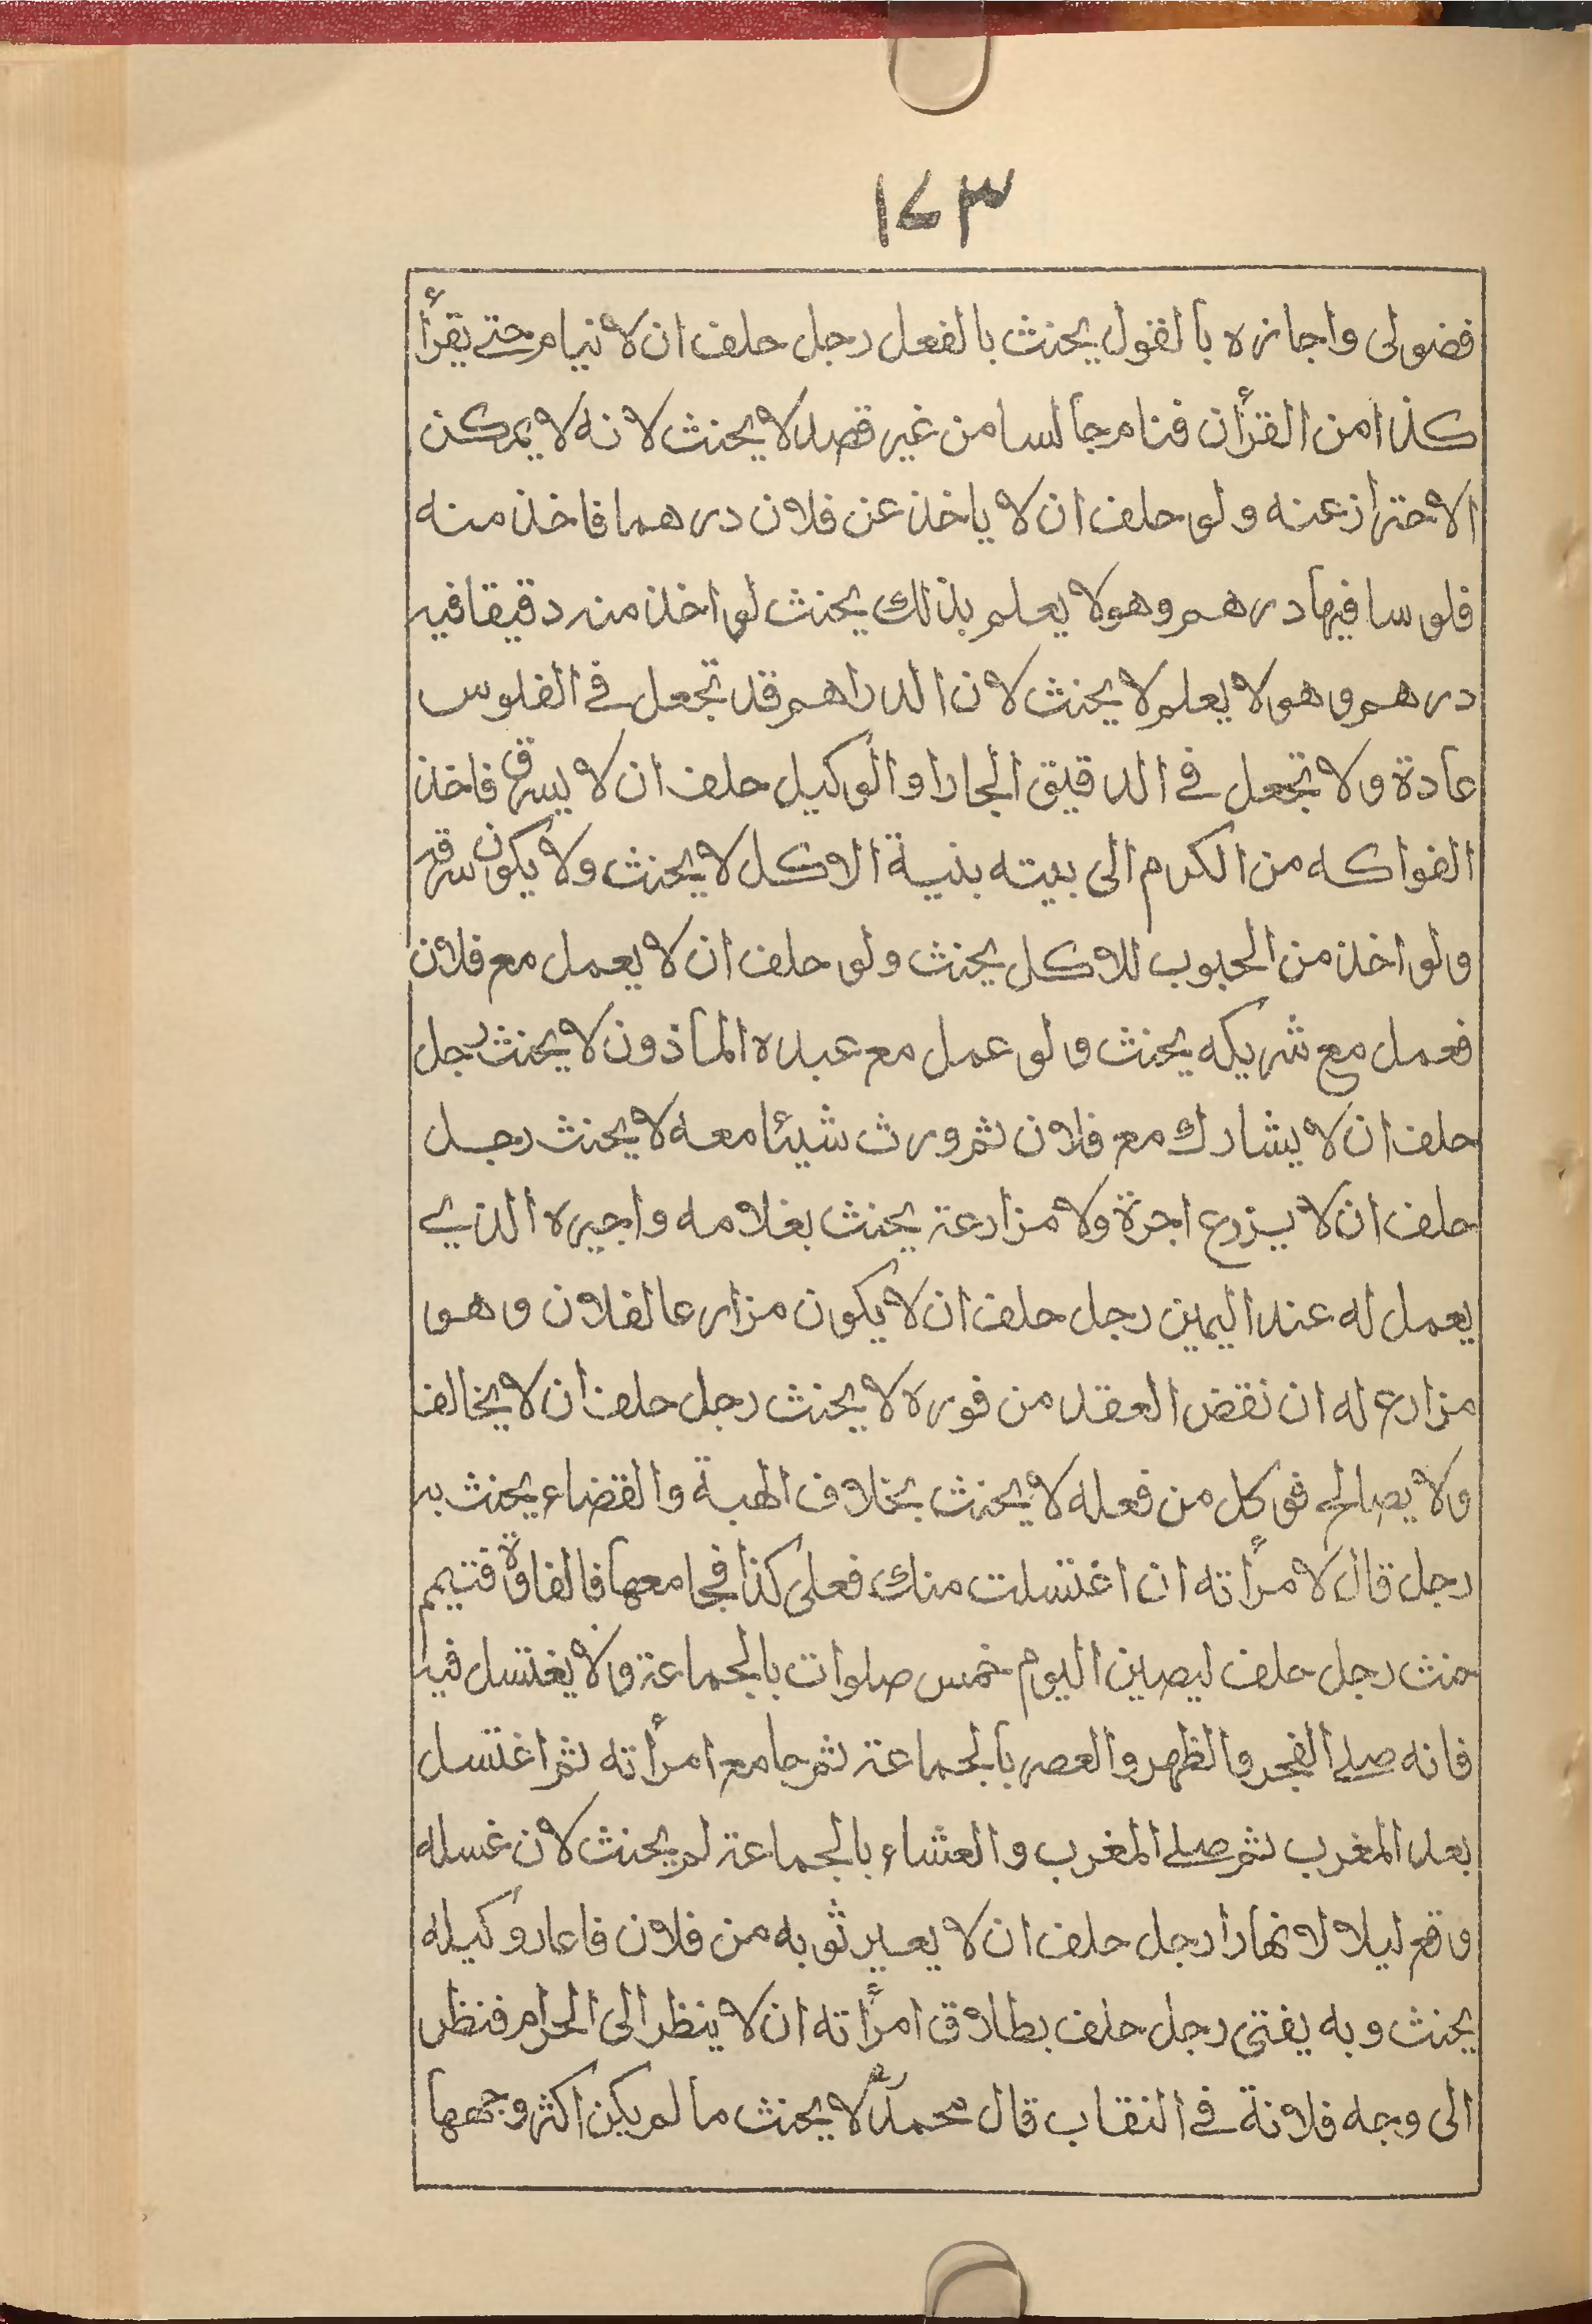 ١٧٣
فضولى واجازه بالقول يحنث بالفعل رجل حلف ان لا ينام حتے يقرأ
كذا من القرأن فنام جالسا من غير قصد لا يحنث لانه لا يمكن
الاحتراز عنه ولو حلف ان لا ياخذ عن فلان درهما فاخذ منه
فلوسا فيها درهم وهو لا يعلم بذلك يحنث لو اخذ منه دقيقا فيه
درهم وهو لا يعلم لا يحنث لان الدراهم قد تجعل فے الفلوس
عادة ولا تجعل فے الدقيق الجارا والوكيل حلف ان لا يسرق فاخذ
الفواكه من الكرم الى بيته بنية الاكل لا يحنث ولا يكون سرقه
ولو اخذ من الحبوب للاكل يحنث ولو حلف ان لا يعمل مع فلان
فعمل مع شريكه يحنث ولو عمل مع عبده الماذون لا يحنث رجل
حلف ان لا يشارك مع فلان ثم ورث شيئا معه لا يحنث رجل
حلف ان لا يزرع اجرة ولا مزارعة يحنث بغلامه واجيره الذے
يعمل له عند اليمين رجل حلف ان لا يكون مزارعا لفلان وهو
مزارع له ان نقض العقد من فوره لا يحنث رجل حلف ان لا يخالف
ولا يصالح فوكل من فعله لا يحنث بخلاف الهبة والقضاء يحنث به
رجل قال لامرأته ان اغتسلت منك فعلى كذا فجامعها فالفاوة فتيمم
حنث رجل حلف ليصين اليوم خمس صلوات بالجماعة ولا يغتسل فيه
فانه صلے الفجر والظهر والعصر بالجماعة ثم جامع امرأته ثم اغتسل
بعد المغرب ثم صلے المغرب والعشاء بالجماعة لم يحنث لان غسله
وقع ليلا لا نهارا رجل حلف ان لا يعير ثوبه من فلان فاعار وكيله
يحنث وبه يفتى رجل حلف بطلاق امرأته ان لا ينظر الى الحرام فنظر
الى وجه فلانة فے النقاب قال محمد رح لا يحنث ما لم يكن اكثر وجهها